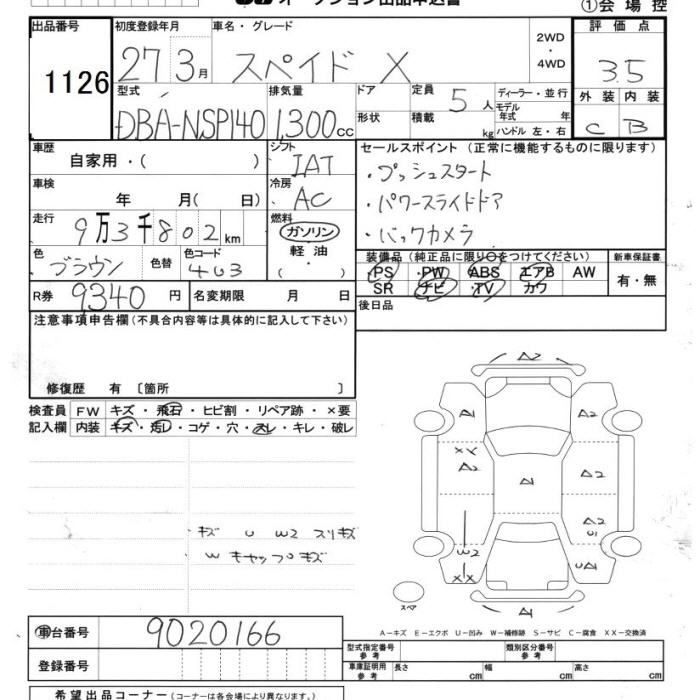 オークション出品申込書
①会場控
出品番号 1126
初度登録年月 27 3月
車名・グレード スペイド X
2WD・4WD
評価点 3.5
型式 DBA-NSP140
排気量 1,300cc
ドア 形状
定員 5人
積載 kg
ディーラー・並行
モデル年式 年
ハンドル 左・右
外装 内装
C B
車歴 自家用・( )
シフト IAT
セールスポイント(正常に機能するものに限ります)
・プッシュスタート
・パワースライドドア
・バックカメラ
車検 年 月(日)
冷房 AC
走行 9万3千802km
燃料 ガソリン・軽油・( )
色 ブラウン 色替 色コード 4U3
装備品(純正品に限り○をつけてください) 新車保証書
PS PW ABS エアB AW 有・無
SR ナビ TV カワ
R券 9340円 名変期限 月 日
後日品
注意事項申告欄(不具合内容等は具体的に記入して下さい)
修復歴 有〔箇所 〕
検査員 FW キズ・飛石・ヒビ割・リペア跡・×要
記入欄 内装 キズ・汚れ・コゲ・穴・スレ・キレ・破レ
キズ U W2 スリキズ
W キャップキズ
A2
A1
XX
A2
A1
A2
A2
W2
XX
A1
スペア
A-キズ E-エクボ U-凹み W-補修跡 S-サビ C-腐食 XX-交換済
車台番号 9020166
登録番号
型式指定番号 参考 類別区分番号 参考
車庫証明用 参考 長さ cm 幅 cm 高さ cm
希望出品コーナー(コーナーは各会場により異なります。)